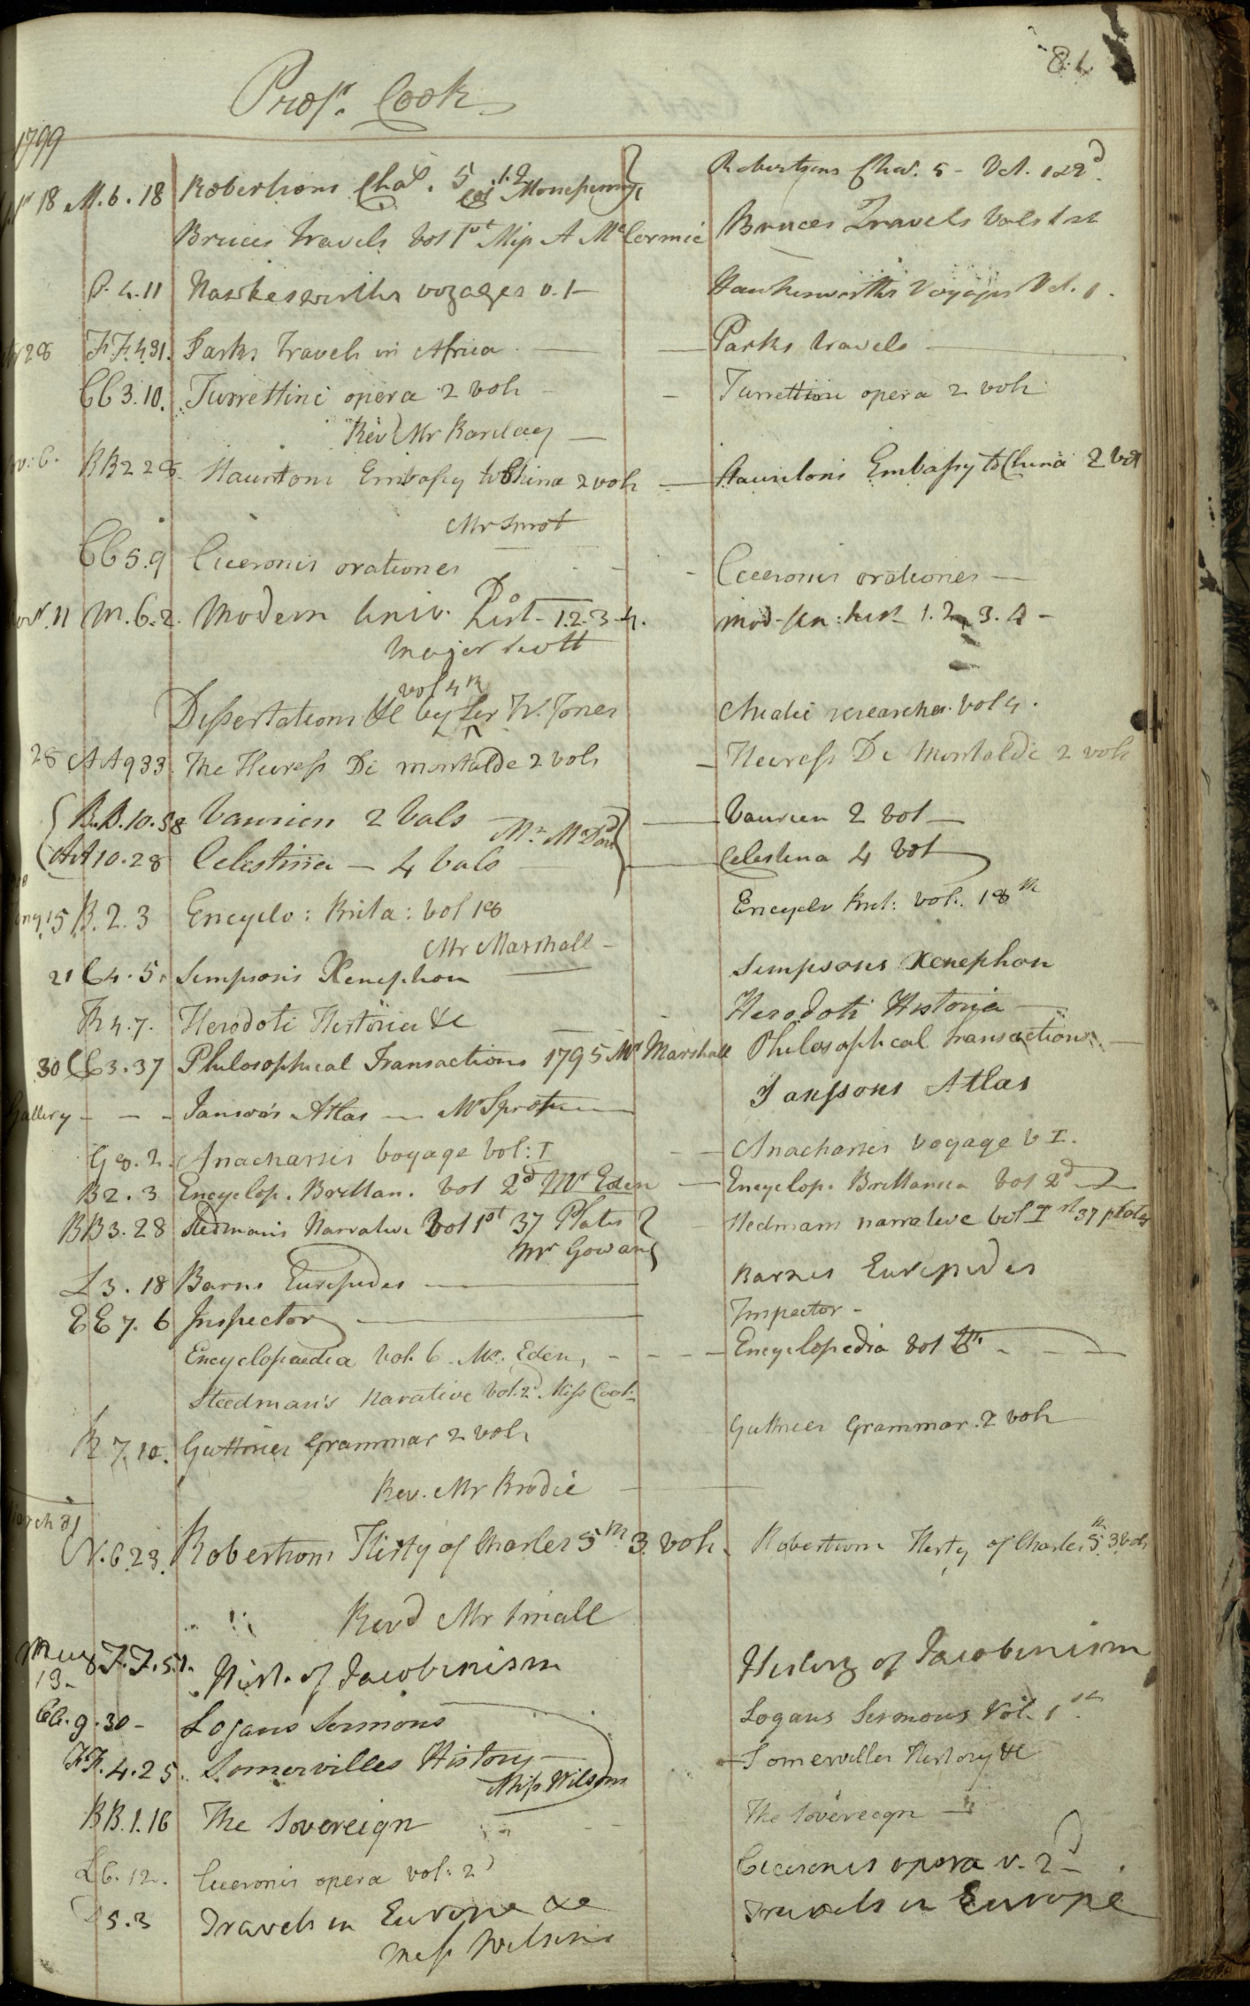 81
Profr. Cook
1799
18 M.6.18 Robertsons Chas. 5 1.2 Monypenny Robertsons Chas. 5 - Vol. 1 & 2d.
Bruces travels vol 1st Miss A McCormic Bruces Travels Vols 1st
P.4.11 Hawkesworths voyages v. 1 — Hawkesworths Voyages Vol. 1.
28 FF.4.31. Parks travels in Africa — Parks travels —
CC3.10. Turrettini opera 2 vols — Turrettini opera 2 vols
Revd Mr Barclay —
6. BB228. Stauntons Embassy to China 2 vols — Stauntons Embassy to China 2 vol
Mr Sprot
CC5.9 Ciceronis orationes - Ciceronis orationes —
11 M.6.2. Modern Univ. Hist. 1.2.3.4. Mod. Un: hist 1.2.3.4 -
Major Scott
vol 4th
Dissertations &c by Sir W. Jones Asiatic researches vol 4.
28 AA933. The Heiress Di montalde 2 vols — Heiress Di Montalde 2 vols
BB.10.38 Vaurien 2 vols Mr McDon Vaurien 2 vol —
AA10.28 Celestina — 4 vols Celestina 4 vol
15 B.2.3 Encyclo: Brita: vol 18 Encyclo Brit: vol. 18th
Mr Marshall -
21 C4.5. Simpsons Xenephon Simpsons Xenephon
R4.7. Herodoti Historia &c Herodoti Historia —
30 CC3.37 Philosophical Transactions 1795 Mr Marshall Philosophical transactions —
Gallery - - - Jansons Atlas — Mr Sprot Janssons Atlas
G8.2. Anacharsis voyage vol: I — Anacharsis voyage v I.
B2.3 Encyclop. Brittan. vol 2d Mr Eden — Encyclop. Brittanica vol 2d
BB3.28 Stedmans Narrative vol 1st 37 Plates Stedmans narrative vol I st 37 plates
Mr Gowan
L3.18 Barns Euripides — Barnes Euripides
EE7.6 Inspector — Inspector -
Encyclopaedia vol. 6 Mr. Eden, - - - Encyclopedia vol
Steedman's narative vol. 2d. Miss Cook
R7.10. Guthries Grammar 2 vols Guthries Grammar. 2 vols
Rev. Mr Brodie —
March 31
N.6.23. Robertsons Histy of Charles 5th 3 vols. Robertsons Histy of Charles 5th. 3 vols
Revd Mr Small
May 8 F.F.5.1. Hist. of Jacobinism History of Jacobinism
13 -
CC.9.30 - Logans Sermons Logans Sermons Vol. 1st
FF.4.25. Somervilles History — Somervilles History &c
Miss Wilson
BB.1.16 The Sovereign The Sovereign —
L6.12. Ciceronis opera vol: 2d Ciceronis opera v. 2d
5.3 Travels in Europe &c Travels in Europe
Miss Wilson